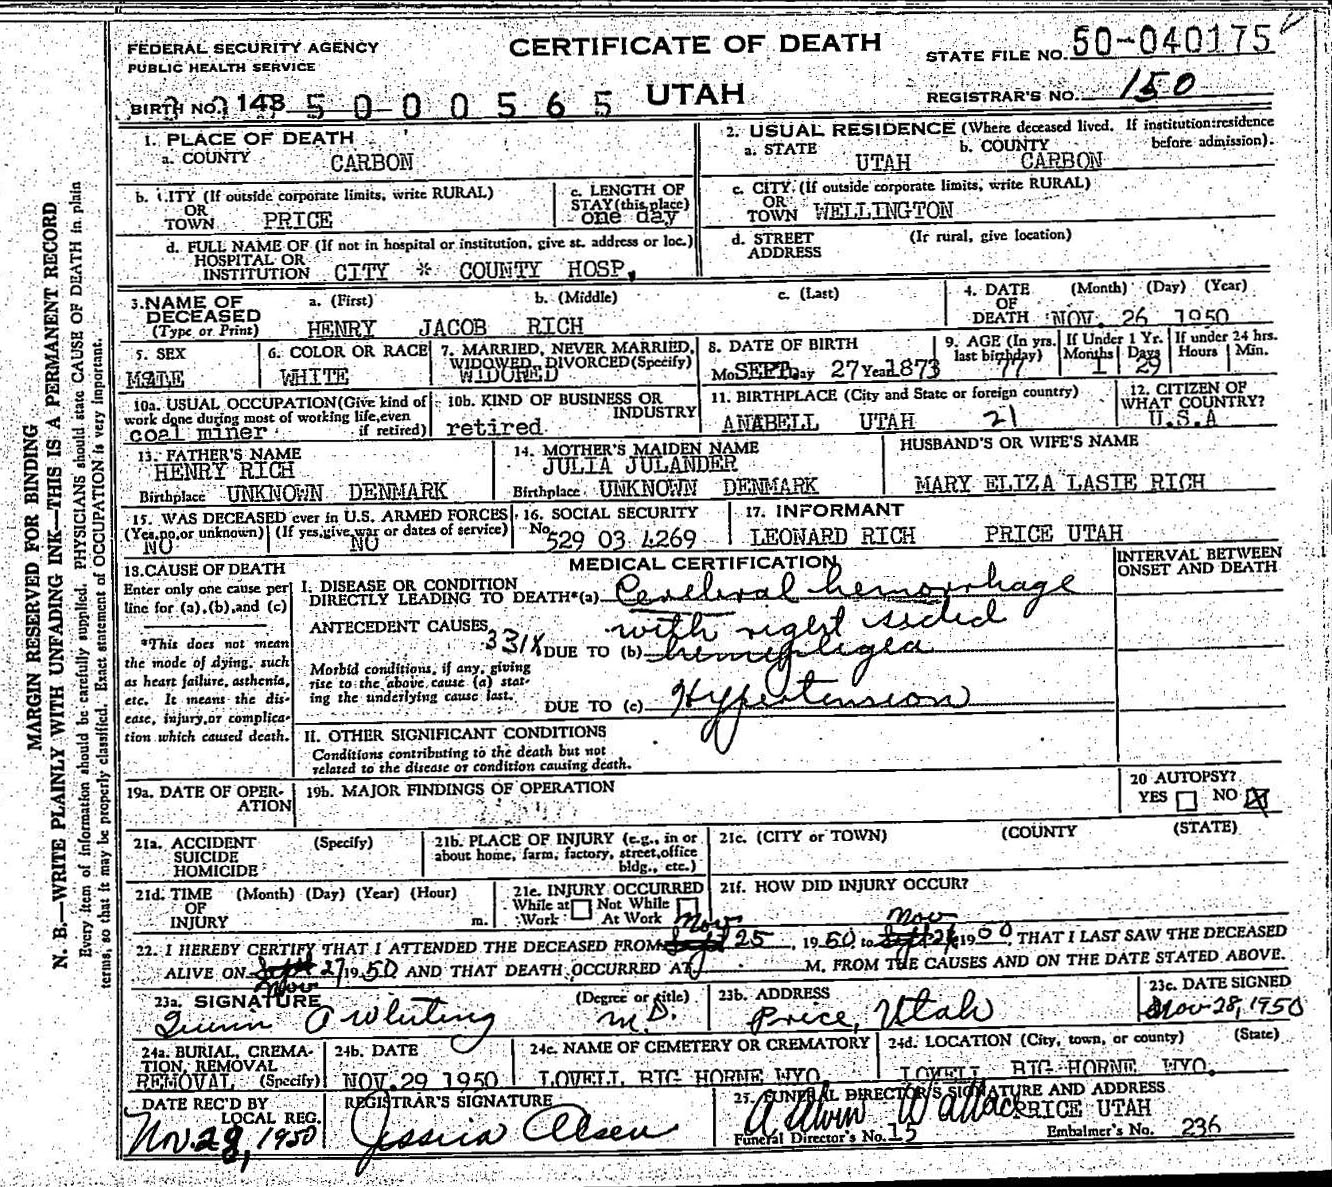 FEDERAL SECURITY AGENCY
PUBLIC HEALTH SERVICE
CERTIFICATE OF DEATH
UTAH
STATE FILE NO. 50-040175
REGISTRAR'S NO. 150
BIRTH NO. 143 5 0 0 0 5 6 5
1. PLACE OF DEATH
a. COUNTY CARBON
2. USUAL RESIDENCE (Where deceased lived. If institution: residence before admission).
a. STATE UTAH b. COUNTY CARBON
b. CITY (If outside corporate limits, write RURAL)
OR
TOWN PRICE
c. LENGTH OF
STAY (this place)
one day
c. CITY (If outside corporate limits, write RURAL)
OR
TOWN WELLINGTON
d. FULL NAME OF (If not in hospital or institution, give st. address or loc.)
HOSPITAL OR
INSTITUTION CITY * COUNTY HOSP.
d. STREET (If rural, give location)
ADDRESS
3. NAME OF DECEASED
(Type or Print)
a. (First) b. (Middle) c. (Last)
HENRY JACOB RICH
4. DATE (Month) (Day) (Year)
OF
DEATH NOV. 26 1950
5. SEX
MALE
6. COLOR OR RACE
WHITE
7. MARRIED, NEVER MARRIED,
WIDOWED, DIVORCED (Specify)
WIDORED
8. DATE OF BIRTH
Mo. SEPT. Day 27 Year 1873
9. AGE (In yrs. last birthday) 77
If Under 1 Yr. Months 1 Days 29
If under 24 hrs. Hours Min.
10a. USUAL OCCUPATION (Give kind of
work done during most of working life, even
if retired)
coal miner
10b. KIND OF BUSINESS OR
INDUSTRY
retired
11. BIRTHPLACE (City and State or foreign country)
ANABELL UTAH 21
12. CITIZEN OF
WHAT COUNTRY?
U.S.A
13. FATHER'S NAME
HENRY RICH
Birthplace UNKNOWN DENMARK
14. MOTHER'S MAIDEN NAME
JULIA JULANDER
Birthplace UNKNOWN DENMARK
HUSBAND'S OR WIFE'S NAME
MARY ELIZA LASIE RICH
15. WAS DECEASED ever in U.S. ARMED FORCES
(Yes, no, or unknown) (If yes, give war or dates of service)
NO NO
16. SOCIAL SECURITY
No. 529 03 4269
17. INFORMANT
LEONARD RICH PRICE UTAH
18. CAUSE OF DEATH
Enter only one cause per
line for (a), (b), and (c)
*This does not mean
the mode of dying, such
as heart failure, asthenia,
etc. It means the dis-
ease, injury, or complica-
tion which caused death.
MEDICAL CERTIFICATION
INTERVAL BETWEEN
ONSET AND DEATH
I. DISEASE OR CONDITION
DIRECTLY LEADING TO DEATH*(a) Cerebral hemorrhage
ANTECEDENT CAUSES with right sided
331X DUE TO (b) hemiplegea
Morbid conditions, if any, giving
rise to the above cause (a) stat-
ing the underlying cause last.
DUE TO (c) Hypertension
II. OTHER SIGNIFICANT CONDITIONS
Conditions contributing to the death but not
related to the disease or condition causing death.
19a. DATE OF OPER-
ATION
19b. MAJOR FINDINGS OF OPERATION
20 AUTOPSY?
YES NO X
21a. ACCIDENT (Specify)
SUICIDE
HOMICIDE
21b. PLACE OF INJURY (e.g., in or
about home, farm, factory, street, office
bldg., etc.)
21c. (CITY or TOWN) (COUNTY (STATE)
21d. TIME (Month) (Day) (Year) (Hour)
OF
INJURY m.
21e. INJURY OCCURRED
While at Not While
Work At Work
21f. HOW DID INJURY OCCUR?
Nov Nov
22. I HEREBY CERTIFY THAT I ATTENDED THE DECEASED FROM Sept 25, 1950 to Sept 26 1950, THAT I LAST SAW THE DECEASED
ALIVE ON Sept 27 1950 AND THAT DEATH OCCURRED AT M. FROM THE CAUSES AND ON THE DATE STATED ABOVE.
Nov
23a. SIGNATURE (Degree or title)
Quinn A Whiting M.D.
23b. ADDRESS
Price, Utah
23c. DATE SIGNED
Nov 28, 1950
24a. BURIAL, CREMA-
TION, REMOVAL
REMOVAL (Specify)
24b. DATE
NOV. 29 1950
24c. NAME OF CEMETERY OR CREMATORY
LOVELL BIG HORNE WYO
24d. LOCATION (City, town, or county) (State)
LOVELL BIG HORNE WYO.
DATE REC'D BY
LOCAL REG.
Nov. 28, 1950
REGISTRAR'S SIGNATURE
Jessica Olsen
25. FUNERAL DIRECTOR'S SIGNATURE AND ADDRESS
A. Alvin Wallace PRICE UTAH
Funeral Director's No. 15 Embalmer's No. 236
MARGIN RESERVED FOR BINDING
N. B.—WRITE PLAINLY WITH UNFADING INK—THIS IS A PERMANENT RECORD
Every item of information should be carefully supplied. PHYSICIANS should state CAUSE OF DEATH in plain
terms, so that it may be properly classified. Exact statement of OCCUPATION is very important.